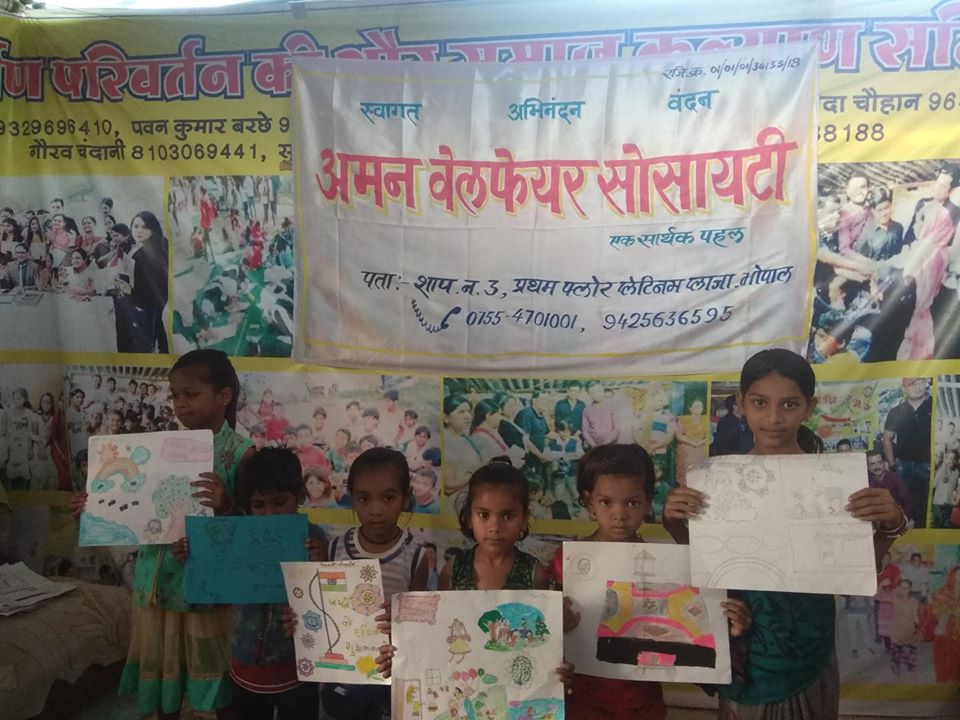 परिवर्तन की और समाज कल्याण
9329696410, पवन कुमार बरछे 9
गौरव चंदानी 8103069441,
दा चौहान 96
38188
रजि.क्र. 01/01/01/34153/18
स्वागत अभिनंदन वंदन
अमन वेलफेयर सोसायटी
एक सार्थक पहल
पता:- शाप.न.3, प्रथम फ्लोर प्लेटिनम प्लाजा भोपाल
0755-4701001, 9425636595